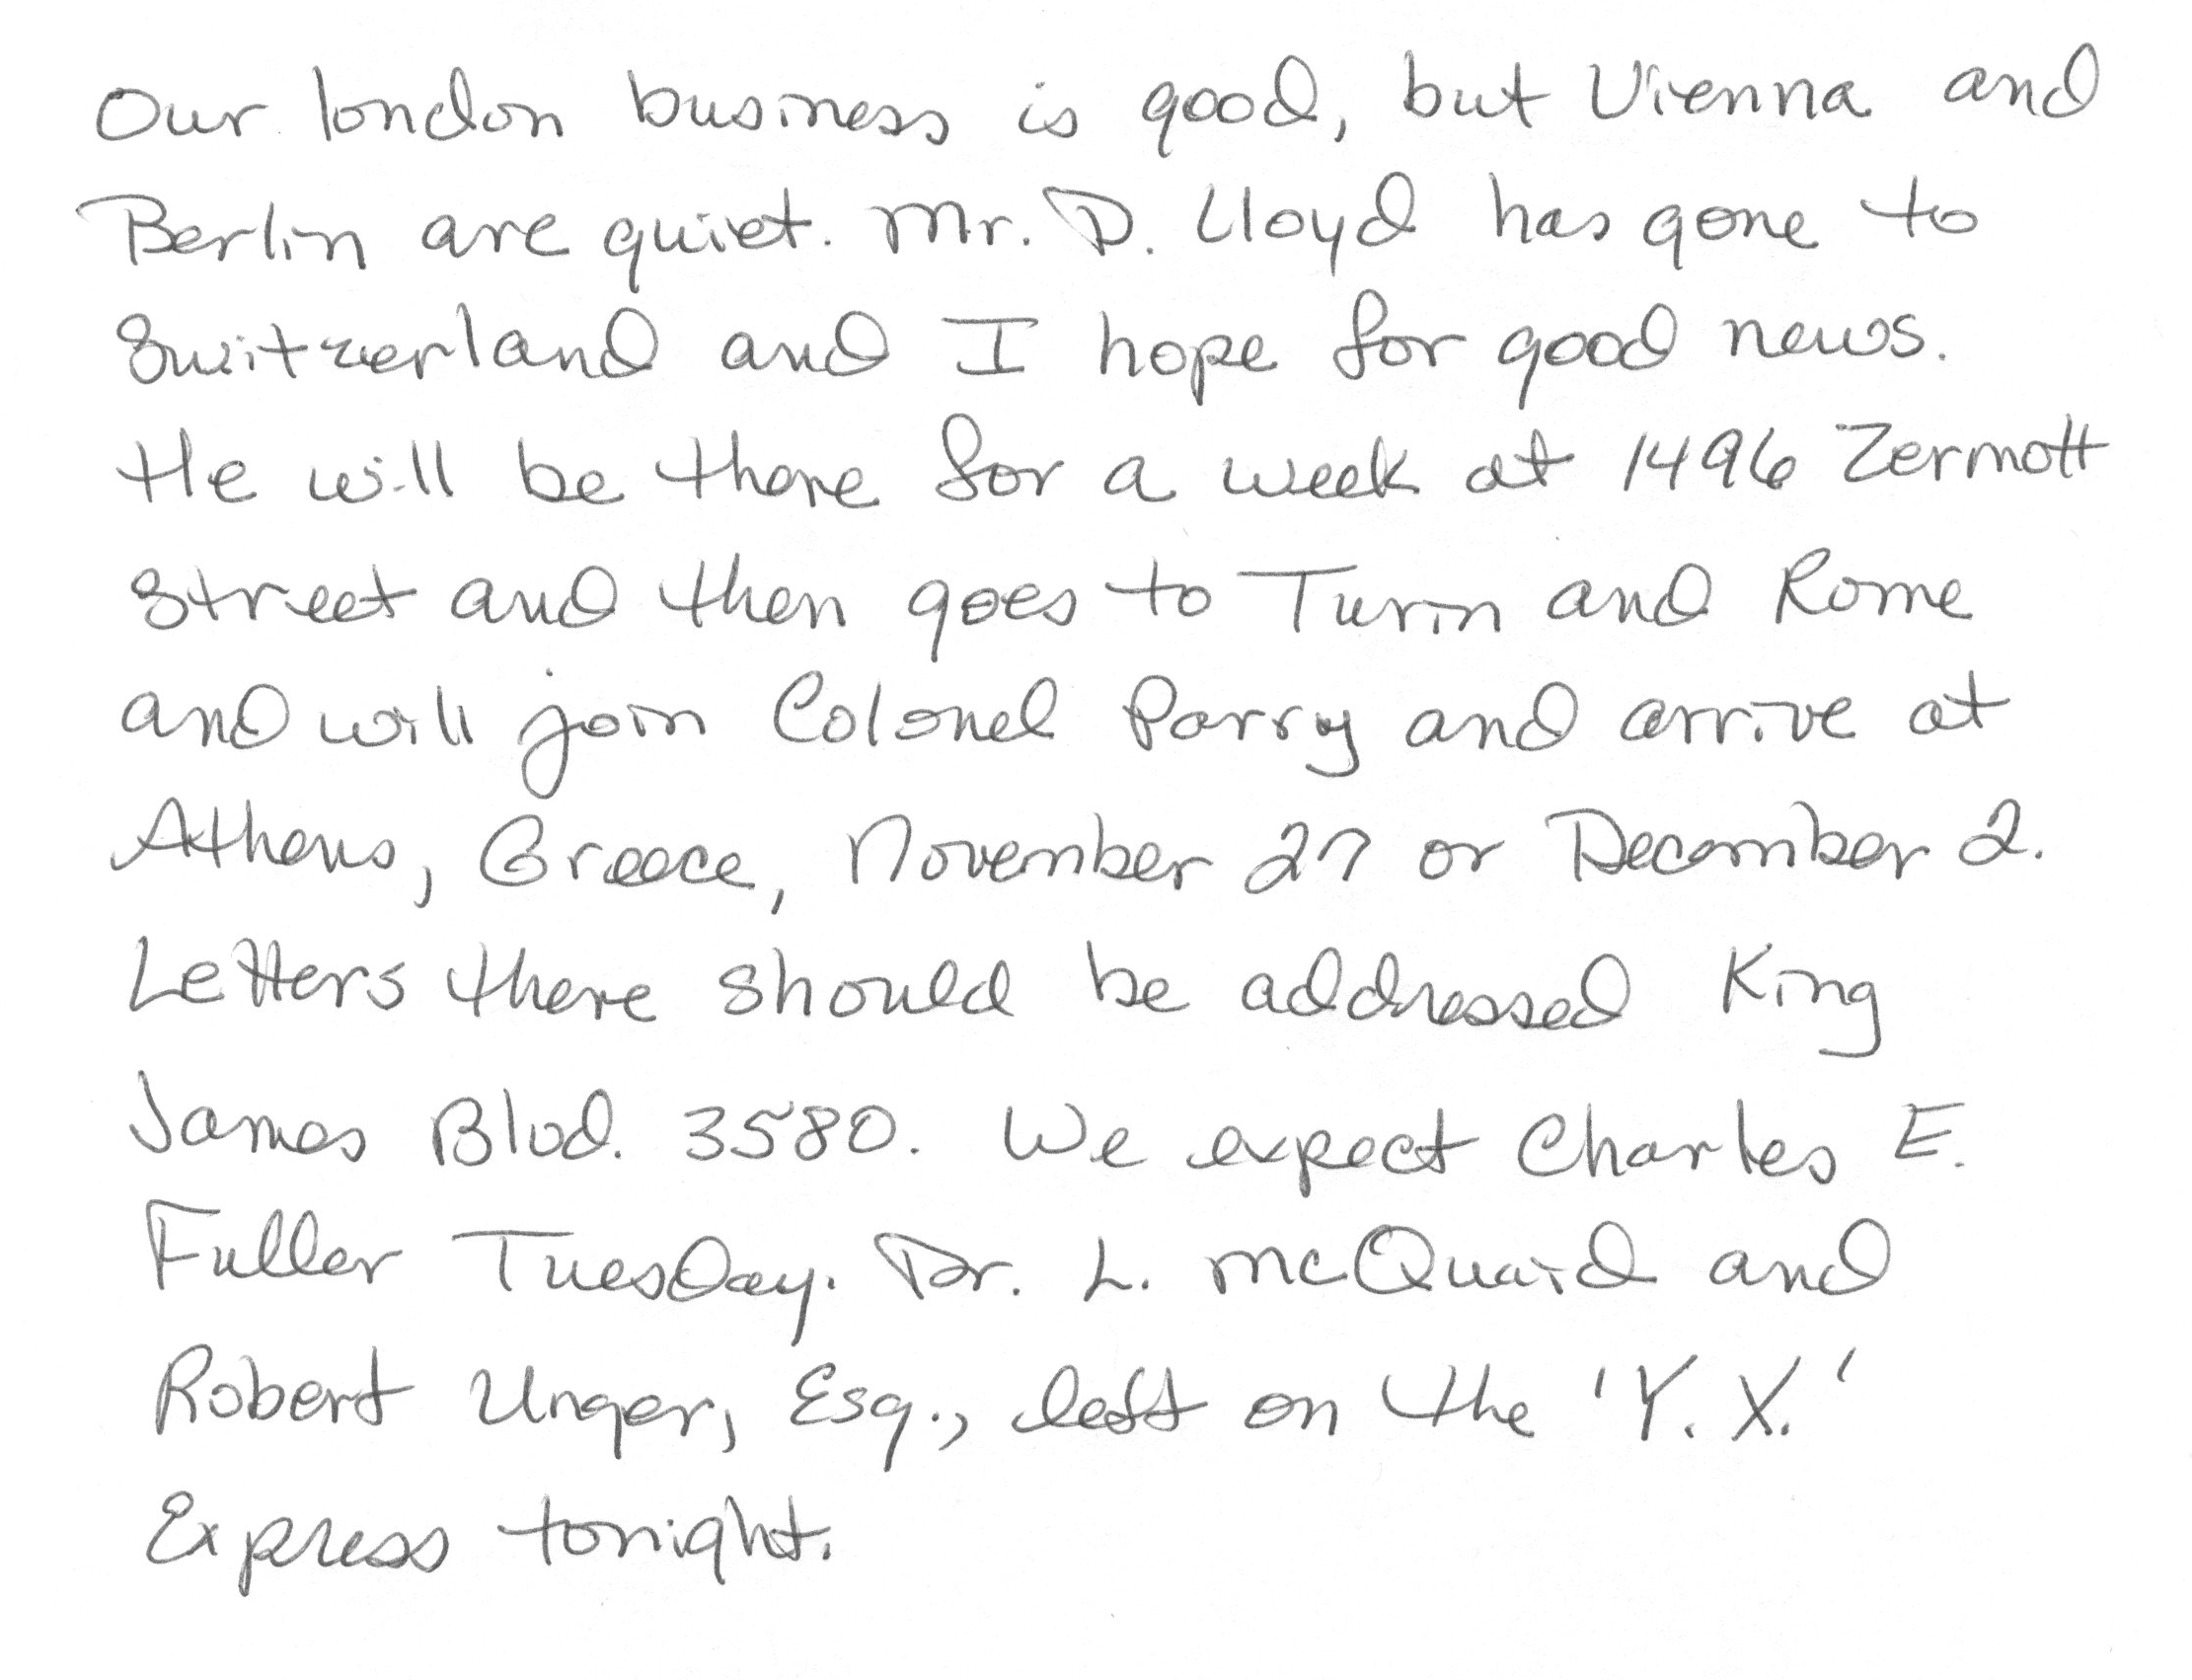 Our london business is good, but Vienna and
Berlin are quiet. Mr. D. Lloyd has gone to
Switzerland and I hope for good news.
He will be there for a week at 1496 Zermott
Street and then goes to Turin and Rome
and will join Colonel Parry and arrive at
Athens, Greece, November 27 or December 2.
Letters there should be addressed King
James Blvd. 3580. We expect Charles E.
Fuller Tuesday. Dr. L. McQuaid and
Robert Unger, Esq., left on the 'Y. X.'
Express tonight.